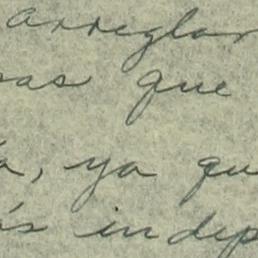 arreglar
sas que
a, ya que
ás indep